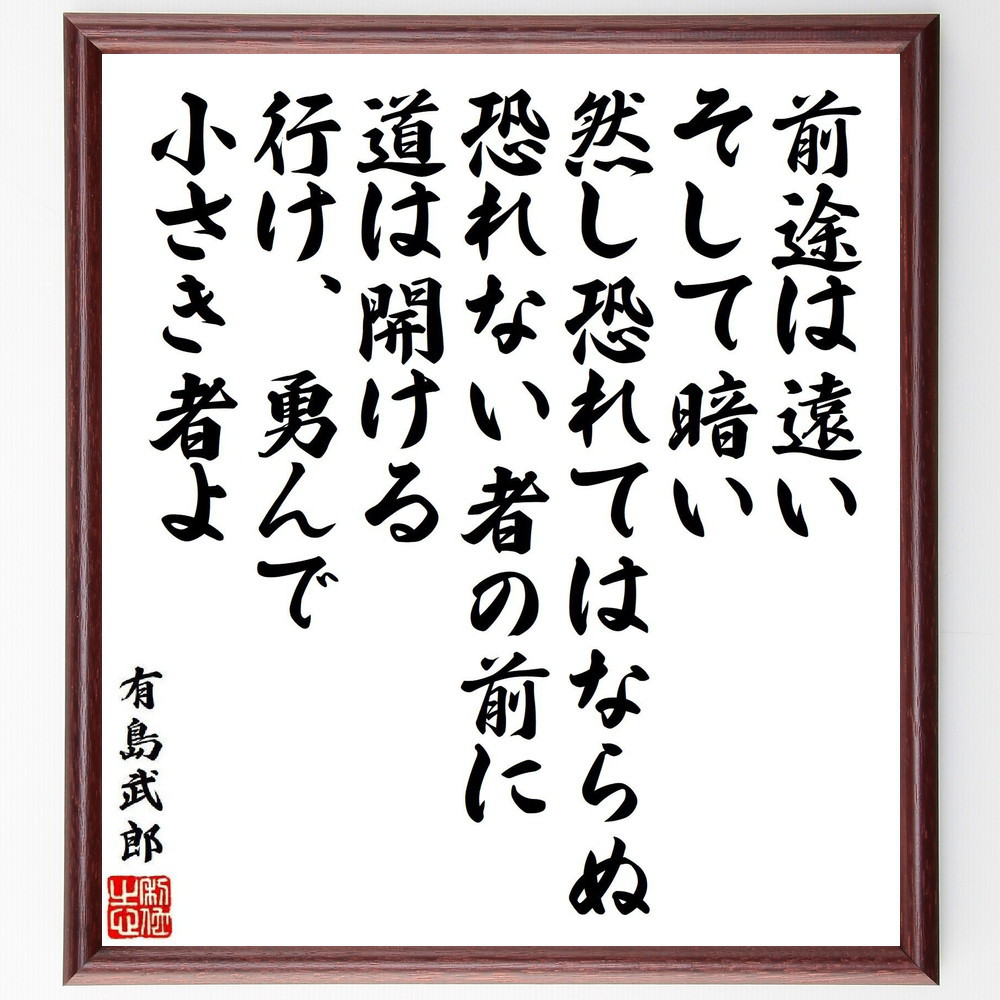 前途は遠い
そして暗い
然し恐れてはならぬ
恐れない者の前に
道は開ける
行け、勇んで
小さき者よ
有島武郎